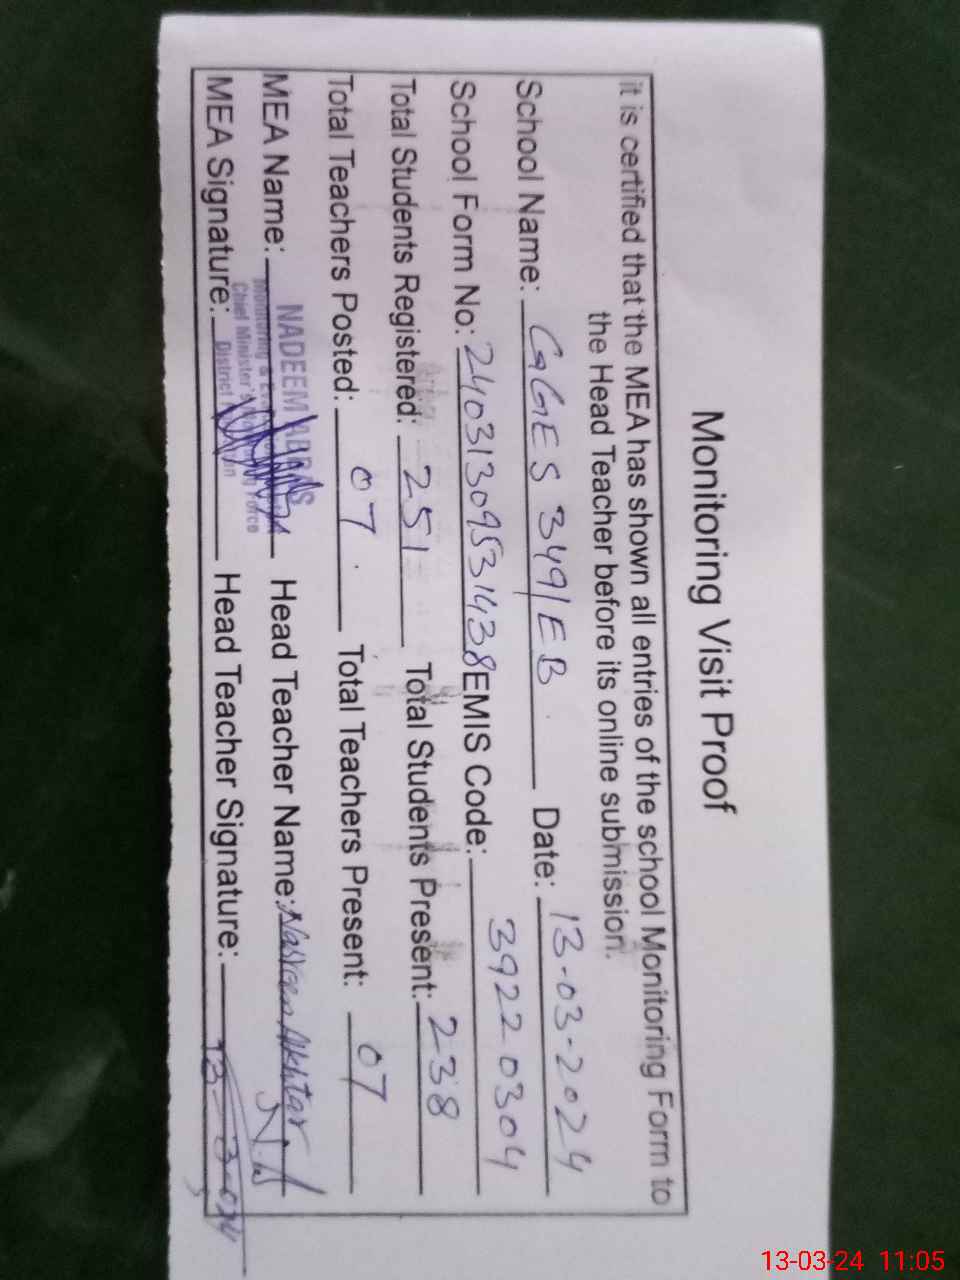 Monitoring Visit Proof
it is certified that the MEA has shown all entries of the school Monitoring Form to
the Head Teacher before its online submission.
School Name: GGES 349/EB Date: 13-03-2024
School Form No: 24031309531438 EMIS Code: 39220304
Total Students Registered: 251 Total Students Present: 238
Total Teachers Posted: 07 Total Teachers Present: 07
MEA Name: NADEEM ABBAS Head Teacher Name: Nasreen Akhtar
Monitoring &
Chief Minister's Monitoring Force
District
MEA Signature: Head Teacher Signature:
13-3-024
13-03-24 11:05